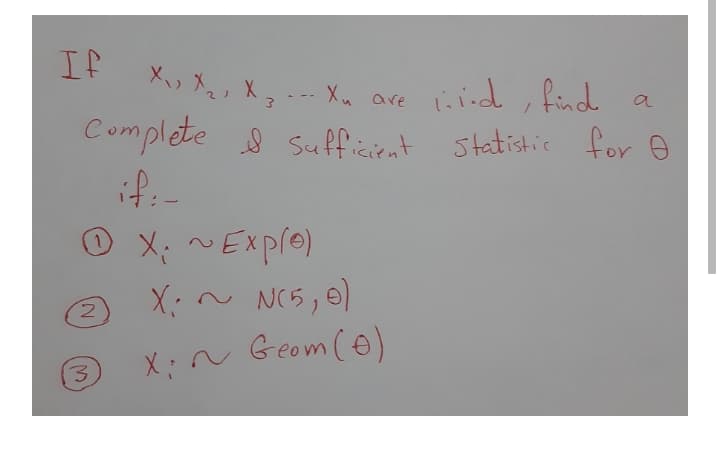 If X₁, X₂, X₃ --- Xₙ are i.i.d, find a
Complete & Sufficient statistic for θ
if:-
① Xᵢ ~ Exp(θ)
② Xᵢ ~ N(5, θ)
③ Xᵢ ~ Geom(θ)